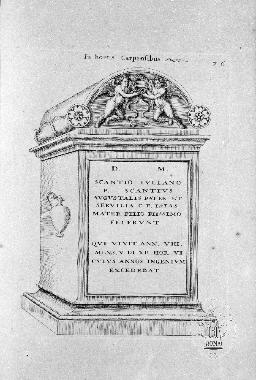 In hortis Carpensibus
D. M.
SCANTIO IVLIANO
P. SCANTIVS
AVGVSTALIS PATER ET
SERVILIA
MATER FILIO PIISSIMO
FECERVNT
QVI VIXIT ANN. VIII.
MENS. V DI. XI HOR. VI
CVIVS ANNOS INGENIVM
EXCEDEBAT
ROMA